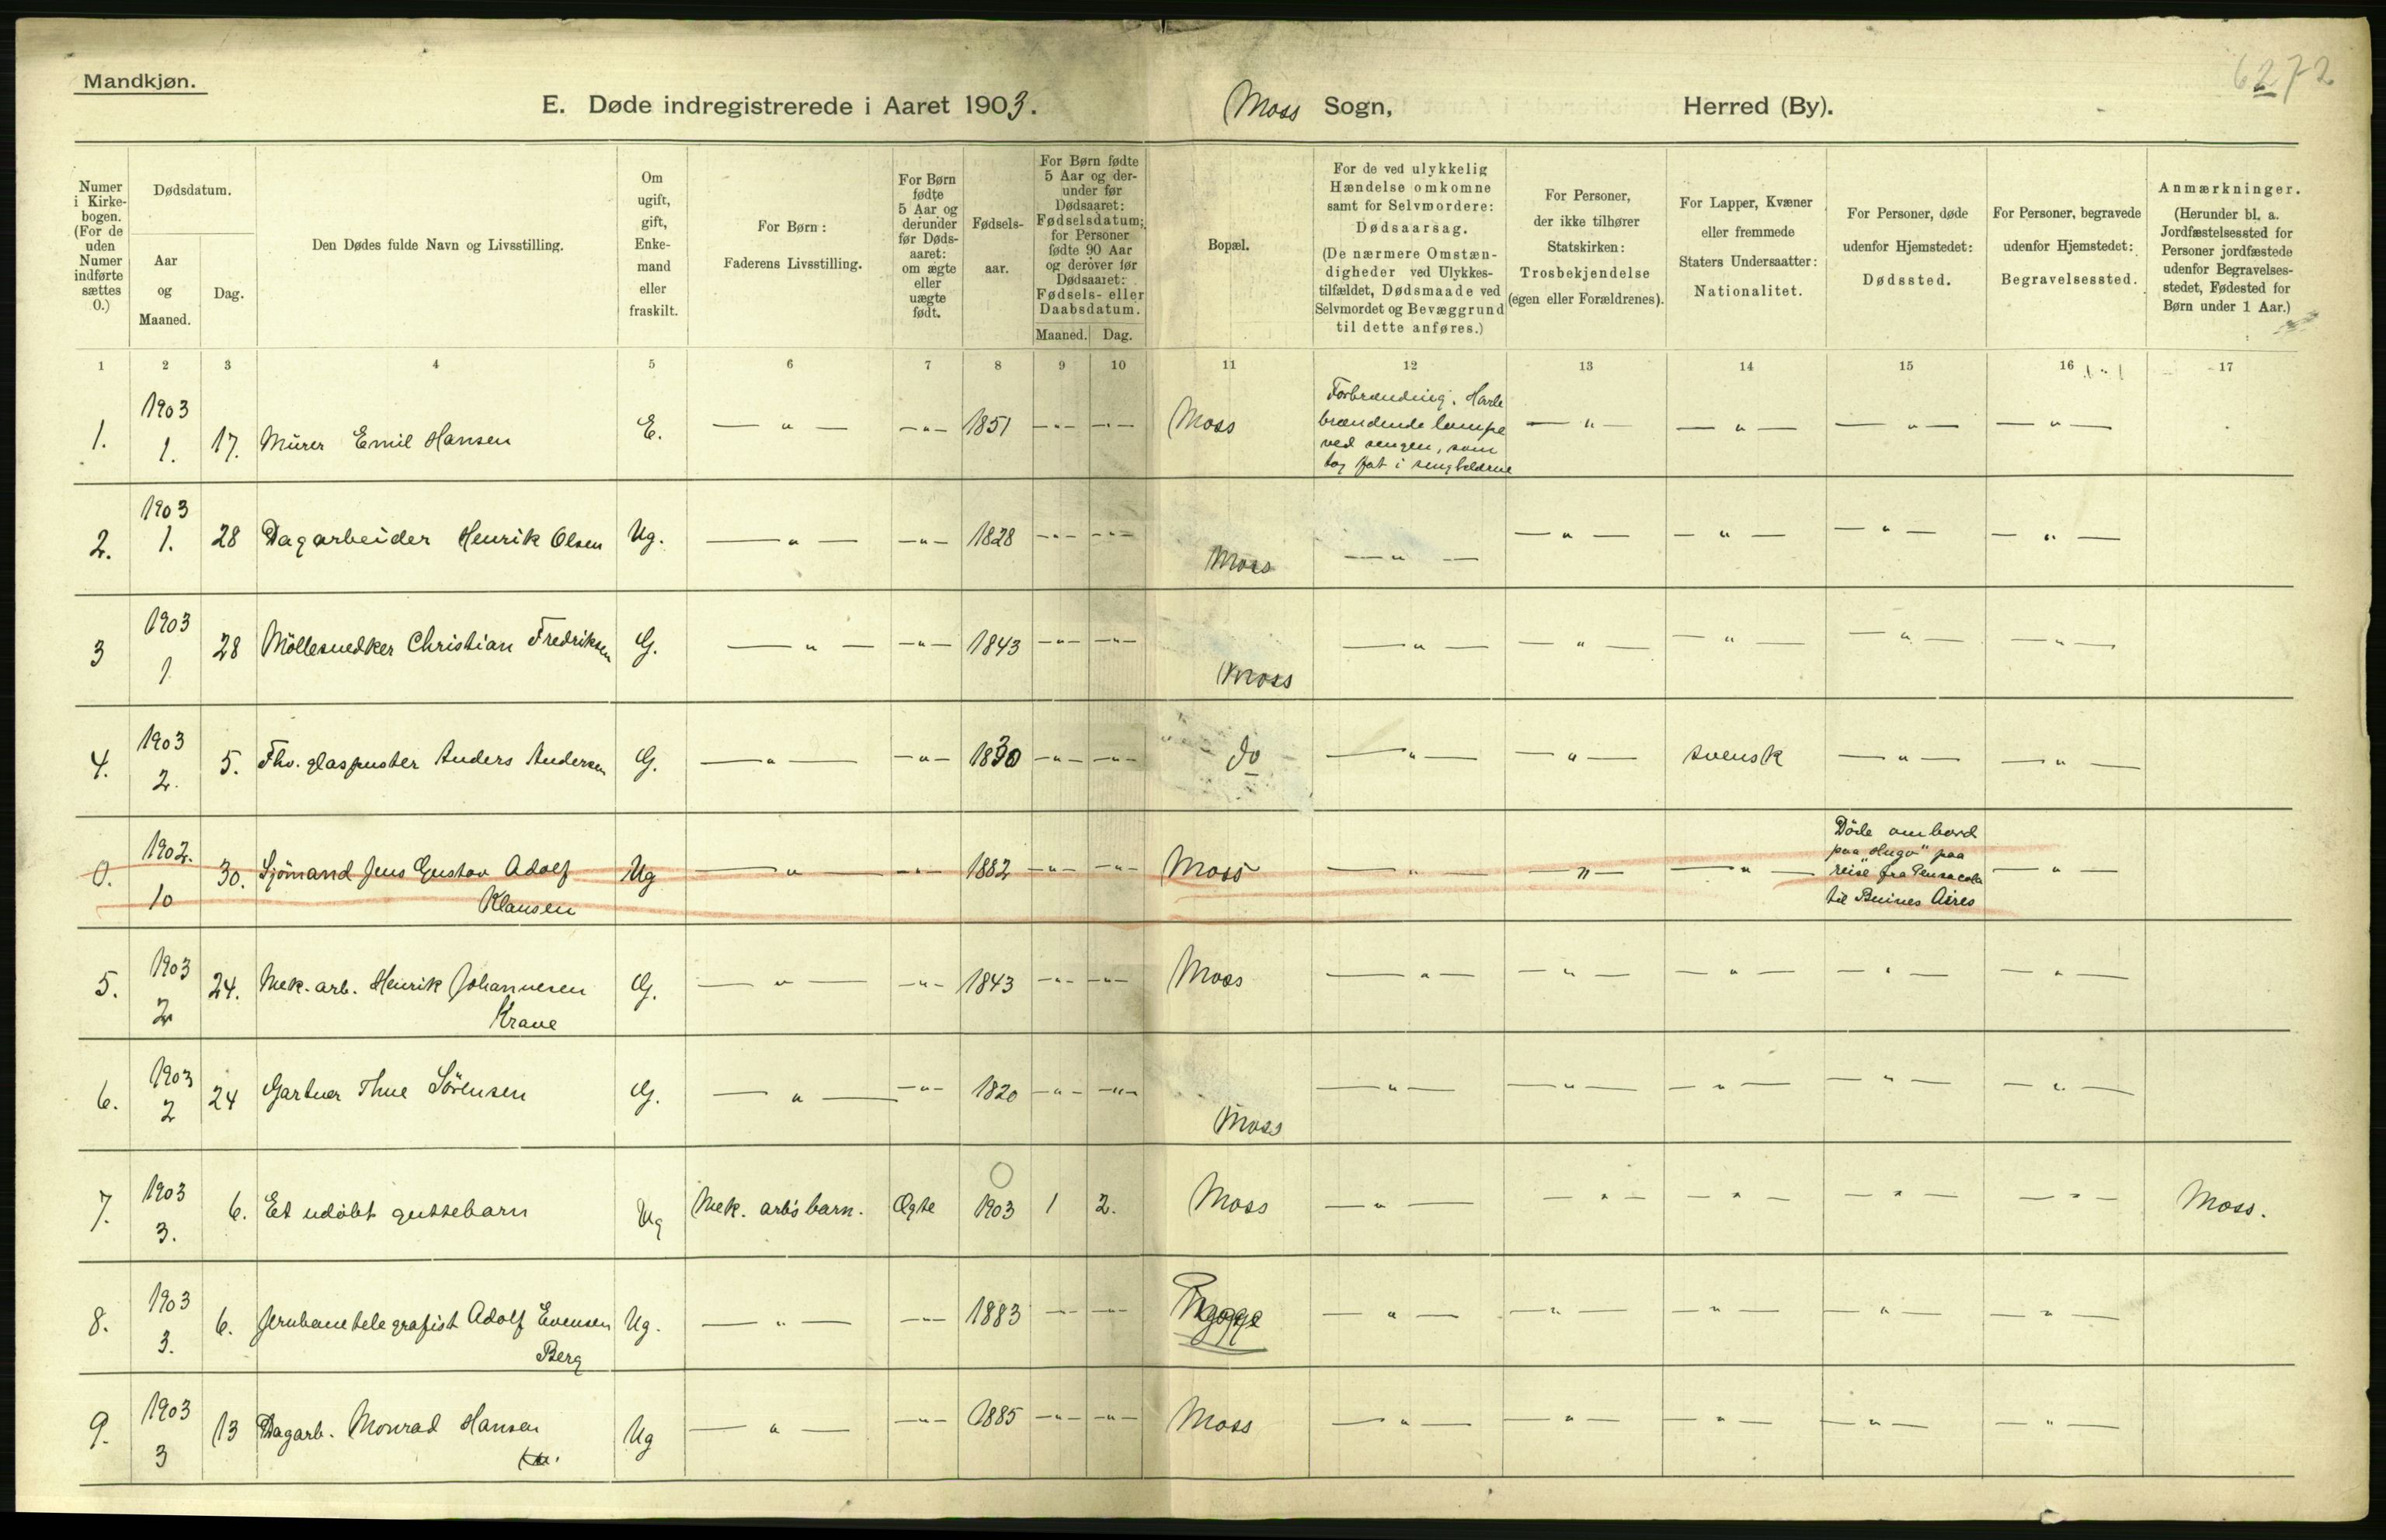 Mandkjøn.
6272
E. Døde indregistrerede i Aaret 1903. Moss Sogn, Herred (By).
Numer i Kirke-bogen. (For de uden Numer indførte sættes 0.)
Dødsdatum.
Aar og Maaned.
Dag.
Den Dødes fulde Navn og Livsstilling.
Om ugift, gift, Enke-mand eller fraskilt.
For Børn:
Faderens Livsstilling.
For Børn fødte 5 Aar og derunder før Døds-aaret: om ægte eller uægte født.
Fødsels-aar.
For Børn fødte 5 Aar og der-under før Dødsaaret: Fødselsdatum; for Personer fødte 90 Aar og derover før Dødsaaret: Fødsels- eller Daabsdatum.
Maaned. Dag.
Bopæl.
For de ved ulykkelig Hændelse omkomne samt for Selvmordere: Dødsaarsag.
(De nærmere Omstæn-digheder ved Ulykkes-tilfældet, Dødsmaade ved Selvmordet og Bevæggrund til dette anføres.)
For Personer, der ikke tilhører Statskirken: Trosbekjendelse (egen eller Forældrenes).
For Lapper, Kvæner eller fremmede Staters Undersaatter: Nationalitet.
For Personer, døde udenfor Hjemstedet: Dødssted.
For Personer, begravede udenfor Hjemstedet: Begravelsessted.
Anmærkninger.
(Herunder bl. a. Jordfæstelsessted for Personer jordfæstede udenfor Begravelses-stedet, Fødested for Børn under 1 Aar.)
1 2 3 4 5 6 7 8 9 10 11 12 13 14 15 16 17
1. 1903 1. 17. Murer Emil Hansen E. — " — — " — 1851 — " — — " — Moss Forbrænding. Havde brændende lampe ved sengen, som tog fat i sengklæderne — " — — " — — " — — " —
2. 1903 1. 28 Dagarbeider Henrik Olsen Ug. — " — — " — 1828 — " — — " — Moss — " — — " — — " — — " — — " —
3 1903 1 28 Möllesnedker Christian Fredriksen G. — " — — " — 1843 — " — — " — Moss — " — — " — — " — — " — — " —
4. 1903 2. 5. Fhv. glaspuster Anders Andersen G. — " — — " — 1830 — " — — " — do — " — — " — svensk — " — — " —
0. 1902. 10 30. Sjömand Jens Gustav Adolf Klausen Ug — " — — " — 1882 — " — — " — Moss — " — — " — — " — Döde ombord paa "Hugo" paa reise fra Pensacola til Buines Aires — " —
5. 1903 2 24. Mek. arb. Henrik Johannesen Krane G. — " — — " — 1843 — " — — " — Moss — " — — " — — " — — " — — " —
6. 1903 2 24 Gartner Thue Sörensen G. — " — — " — 1820 — " — — " — Moss — " — — " — — " — — " — — " —
7. 1903 3. 6. Et udöbt guttebarn Ug Mek. arb's barn. Ægte 1903 1 2. Moss — " — — " — — " — — " — — " — Moss.
8. 1903 3. 6. Jernbanetelegrafist Adolf Evensen Berg Ug. — " — — " — 1883 — " — — " — Rygge — " — — " — — " — — " — — " —
9. 1903 3 13 Dagarb. Monrad Hansen Ug — " — — " — 1885 — " — — " — Moss — " — — " — — " — — " — — " —